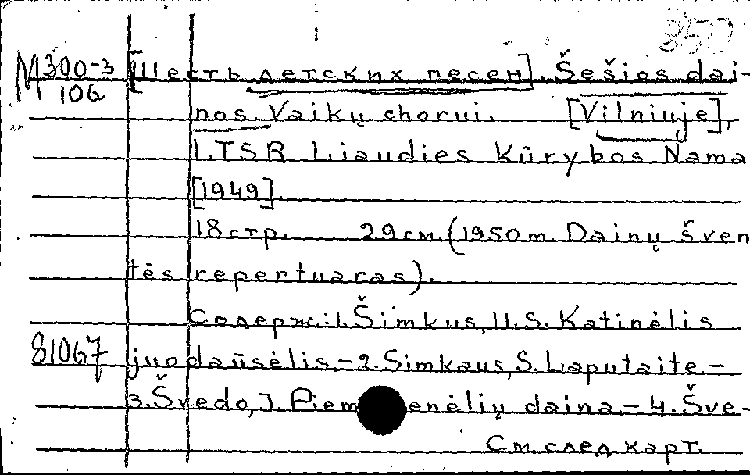 350
М300-3 [Шесть детских песен]. Šešios dai-
106 nos. Vaikų chorui. [Vilniuje],
LTSR Liaudies Kūrybos Nama
[1949].
18 стр. 29 см. (1950 m. Dainų šven
tės repertuaras).
Содерж.: 1. Šimkus, S. Katinėlis
81067 juodaūsėlis. – 2. Simkaus, S. Laputaite. –
3. Švedo, J. Piem enėlių daina. – 4. Šve-
См. след. карт.